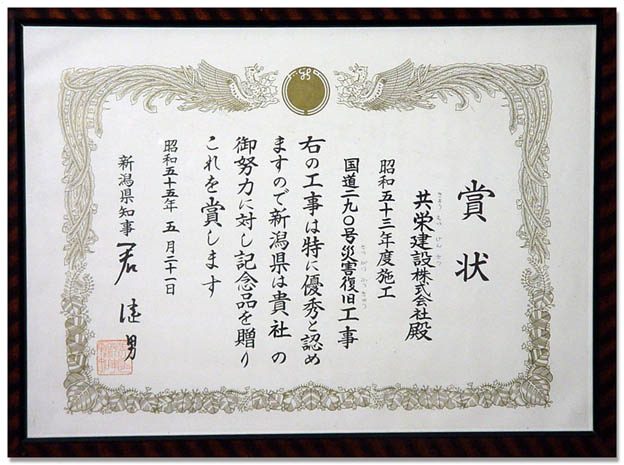 賞状
共栄建設株式会社殿
昭和五十三年度施工
国道二九〇号災害復旧工事
右の工事は特に優秀と認め
ますので新潟県は貴社の
御努力に対し記念品を贈り
これを賞します
昭和五十五年五月二十一日
新潟県知事 君健男